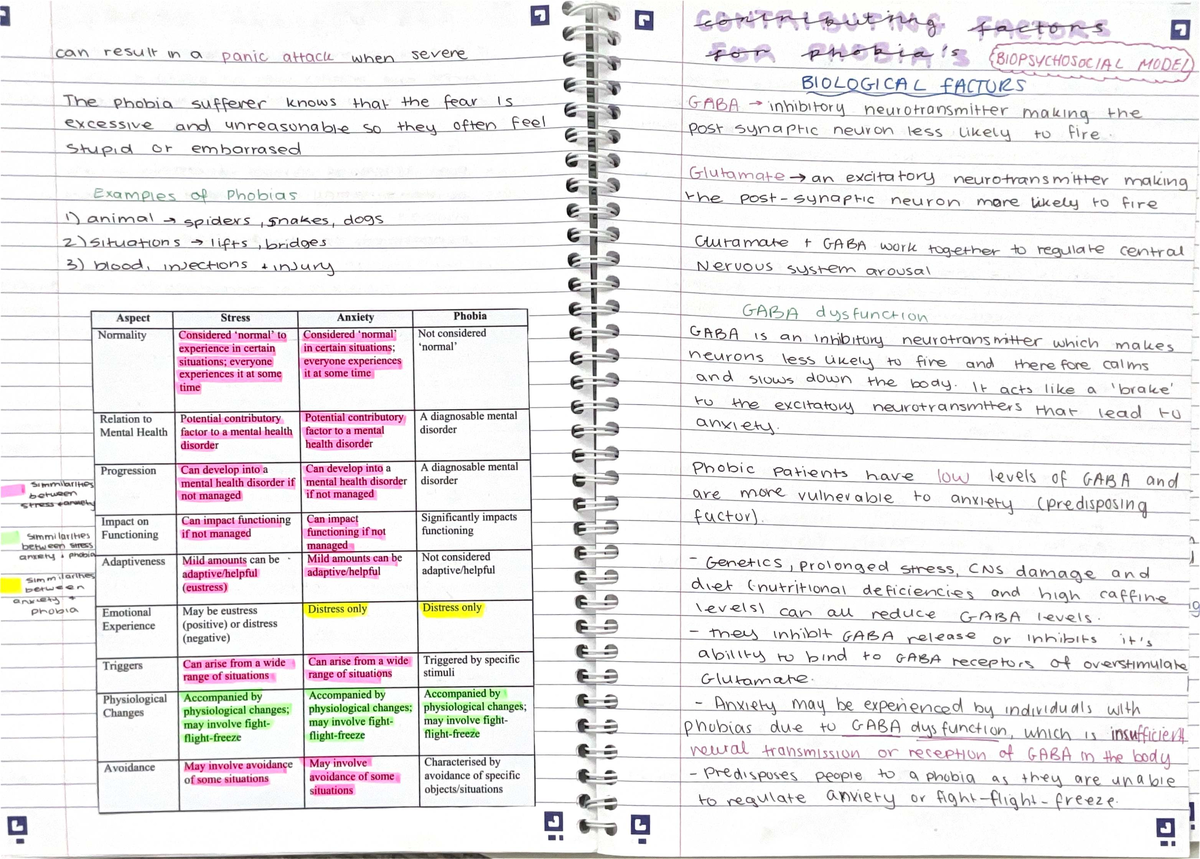 can result in a panic attack when severe
The phobia sufferer knows that the fear is
excessive and unreasonable so they often feel
stupid or embarrased
Examples of Phobias
1) animal → spiders, snakes, dogs
2) situations → lifts, bridges
3) blood, injections + injury
Aspect Stress Anxiety Phobia
Normality
Considered 'normal' to
experience in certain
situations; everyone
experiences it at some
time
Considered 'normal'
in certain situations;
everyone experiences
it at some time
Not considered
'normal'
Relation to
Mental Health
Potential contributory
factor to a mental health
disorder
Potential contributory
factor to a mental
health disorder
A diagnosable mental
disorder
Progression
Can develop into a
mental health disorder if
not managed
Can develop into a
mental health disorder
if not managed
A diagnosable mental
disorder
Impact on
Functioning
Can impact functioning
if not managed
Can impact
functioning if not
managed
Significantly impacts
functioning
Adaptiveness
Mild amounts can be
adaptive/helpful
(eustress)
Mild amounts can be
adaptive/helpful
Not considered
adaptive/helpful
Emotional
Experience
May be eustress
(positive) or distress
(negative)
Distress only
Distress only
Triggers
Can arise from a wide
range of situations
Can arise from a wide
range of situations
Triggered by specific
stimuli
Physiological
Changes
Accompanied by
physiological changes;
may involve fight-
flight-freeze
Accompanied by
physiological changes;
may involve fight-
flight-freeze
Accompanied by
physiological changes;
may involve fight-
flight-freeze
Avoidance
May involve avoidance
of some situations
May involve
avoidance of some
situations
Characterised by
avoidance of specific
objects/situations
Simmilarities
between
stress + anxiety
Simmilarities
between stress
anxiety + phobia
Simmilarities
between
anxiety +
phobia
contributing factors
for phobia's
BIOPSYCHOSOCIAL MODEL
BIOLOGICAL FACTORS
GABA → inhibitory neurotransmitter making the
post synaptic neuron less likely to fire.
Glutamate → an excitatory neurotransmitter making
the post-synaptic neuron more likely to fire
Glutamate + GABA work together to regulate central
Nervous system arousal
GABA dysfunction
GABA is an inhibitory neurotransmitter which makes
neurons less likely to fire and therefore calms
and slows down the body. It acts like a 'brake'
to the excitatory neurotransmitters that lead to
anxiety.
Phobic patients have low levels of GABA and
are more vulnerable to anxiety (predisposing
factor).
- Genetics, prolonged stress, CNS damage and
diet (nutritional deficiencies and high caffine
levels) can all reduce GABA levels.
- they inhibit GABA release or inhibits it's
ability to bind to GABA receptors of overstimulate
Glutamate.
- Anxiety may be experienced by individuals with
phobias due to GABA dysfunction, which is insufficient
neural transmission or reception of GABA in the body
- Predisposes people to a phobia as they are unable
to regulate anxiety or fight-flight-freeze.